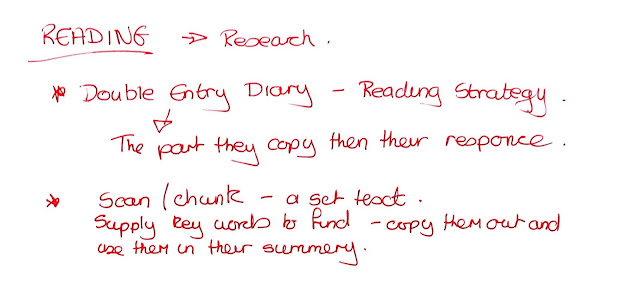 READING → Research.
* Double Entry Diary - Reading Strategy.
The part they copy then their responce.
* Scan / chunk - a set text.
Supply key words to find - copy them out and
use them in their summery.